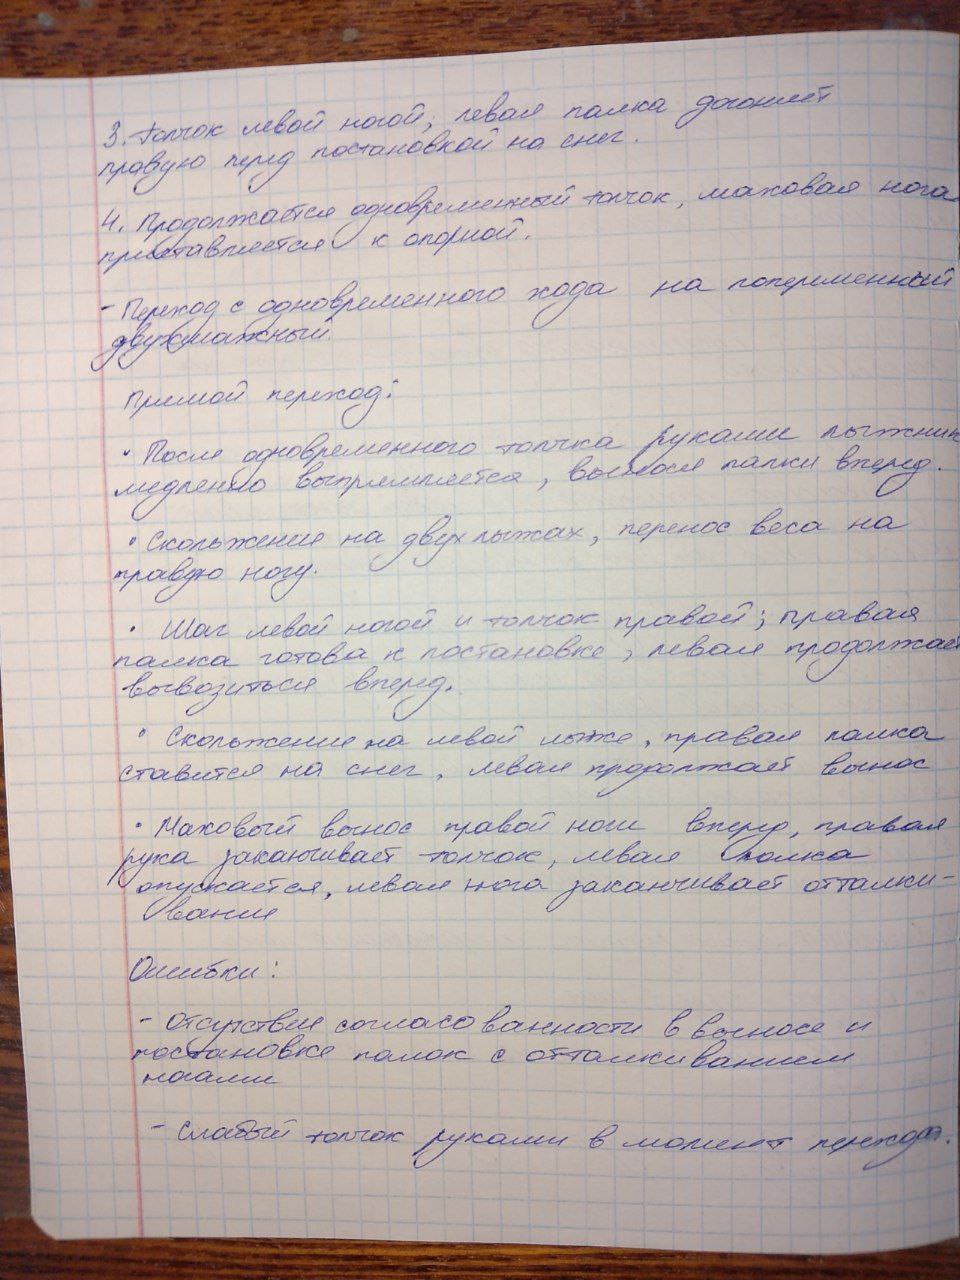 3. Толчок левой ногой; левая палка догоняет
правую перед постановкой на снег.
4. Продолжается одновременный толчок, маховая нога
приставляется к опорной.
- Переход с одновременного хода на попеременный
двухшажный.
Прямой переход:
• После одновременного толчка руками лыжник
медленно выпрямляется, вынося палки вперед.
• Скольжение на двух лыжах, перенос веса на
правую ногу.
• Шаг левой ногой и толчок правой; правая
палка готова к постановке, левая продолжает
вывозиться вперед.
• Скольжение на левой лыже, правая палка
ставится на снег, левая продолжает вынос
• Маховый вынос правой ноги вперед, правая
рука заканчивает толчок, левая палка
опускается, левая нога заканчивает отталки-
вание
Ошибки:
- Отсутствие согласованности в выносе и
постановке палок с отталкиванием
ногами
- Слабый толчок руками в момент перехода.